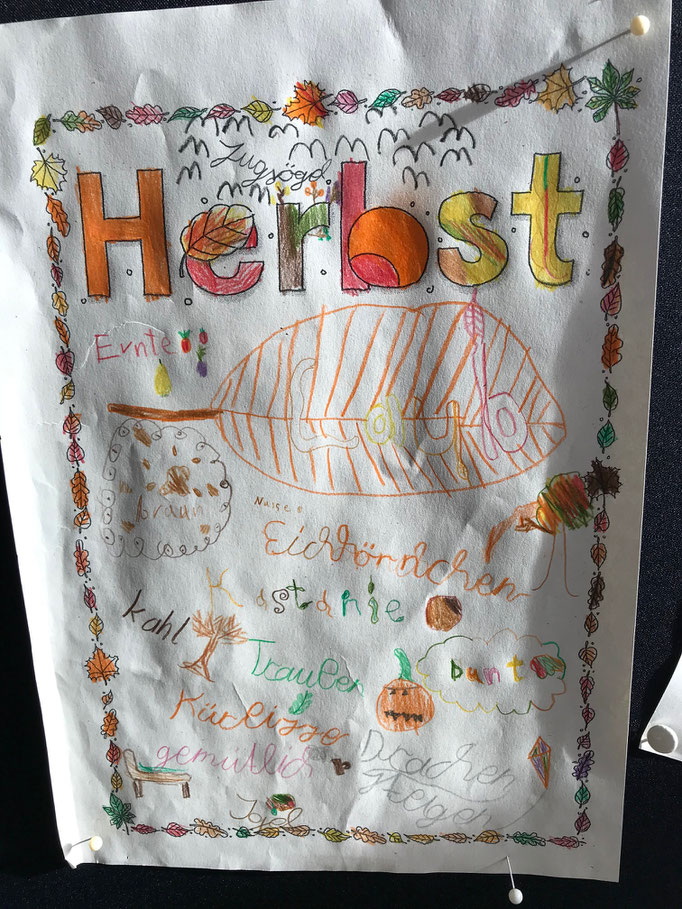 Zugvögel
Herbst
Ernte
Laub
braun
Eichhörnchen
Kastanie
kahl
Trauben
bunt
Kürbisse
gemütlich
Drachen
steigen
Igel